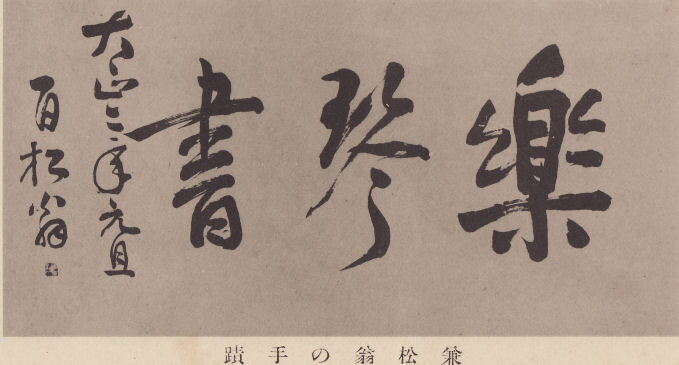 樂琴書
大正二年元旦
百松翁
兼松翁の手蹟